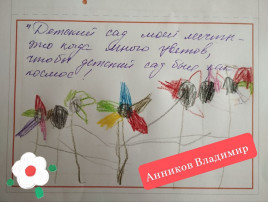 "Детский сад моей мечты-
это когда много цветов,
чтобы детский сад был как
космос!
Анников Владимир